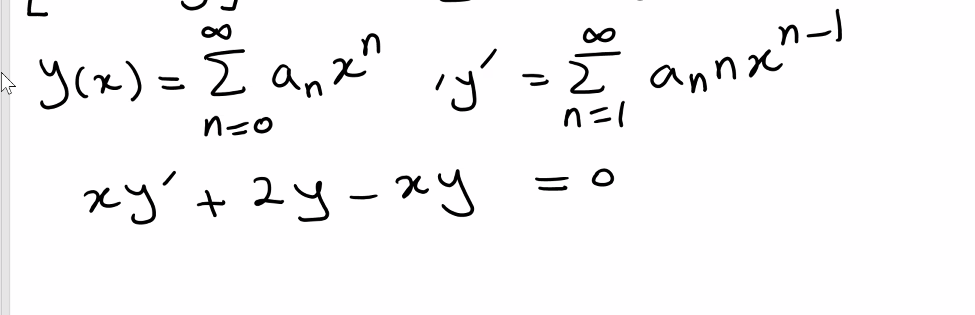 y(x) = ∞ Σ n=0 aₙ xⁿ , y′ = ∞ Σ n=1 aₙ n xⁿ⁻¹
xy′ + 2y − xy = 0